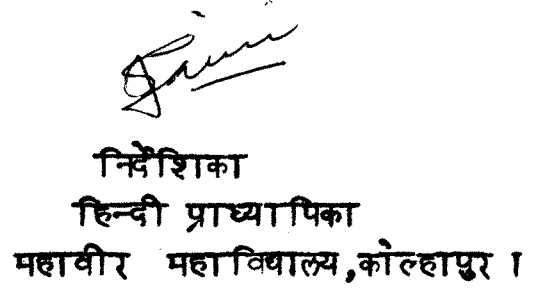 निर्देशिका
हिन्दी प्राध्यापिका
महावीर महाविद्यालय,कोल्हापुर ।